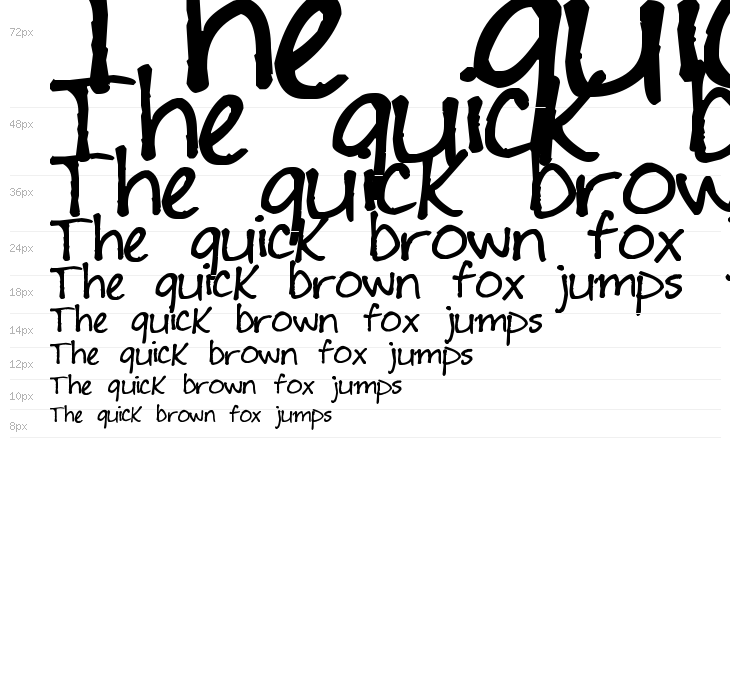 72px The quic
48px The quick b
36px The quick brow
24px The quick brown fox
18px The quick brown fox jumps
14px The quick brown fox jumps
12px The quick brown fox jumps
10px The quick brown fox jumps
8px The quick brown fox jumps